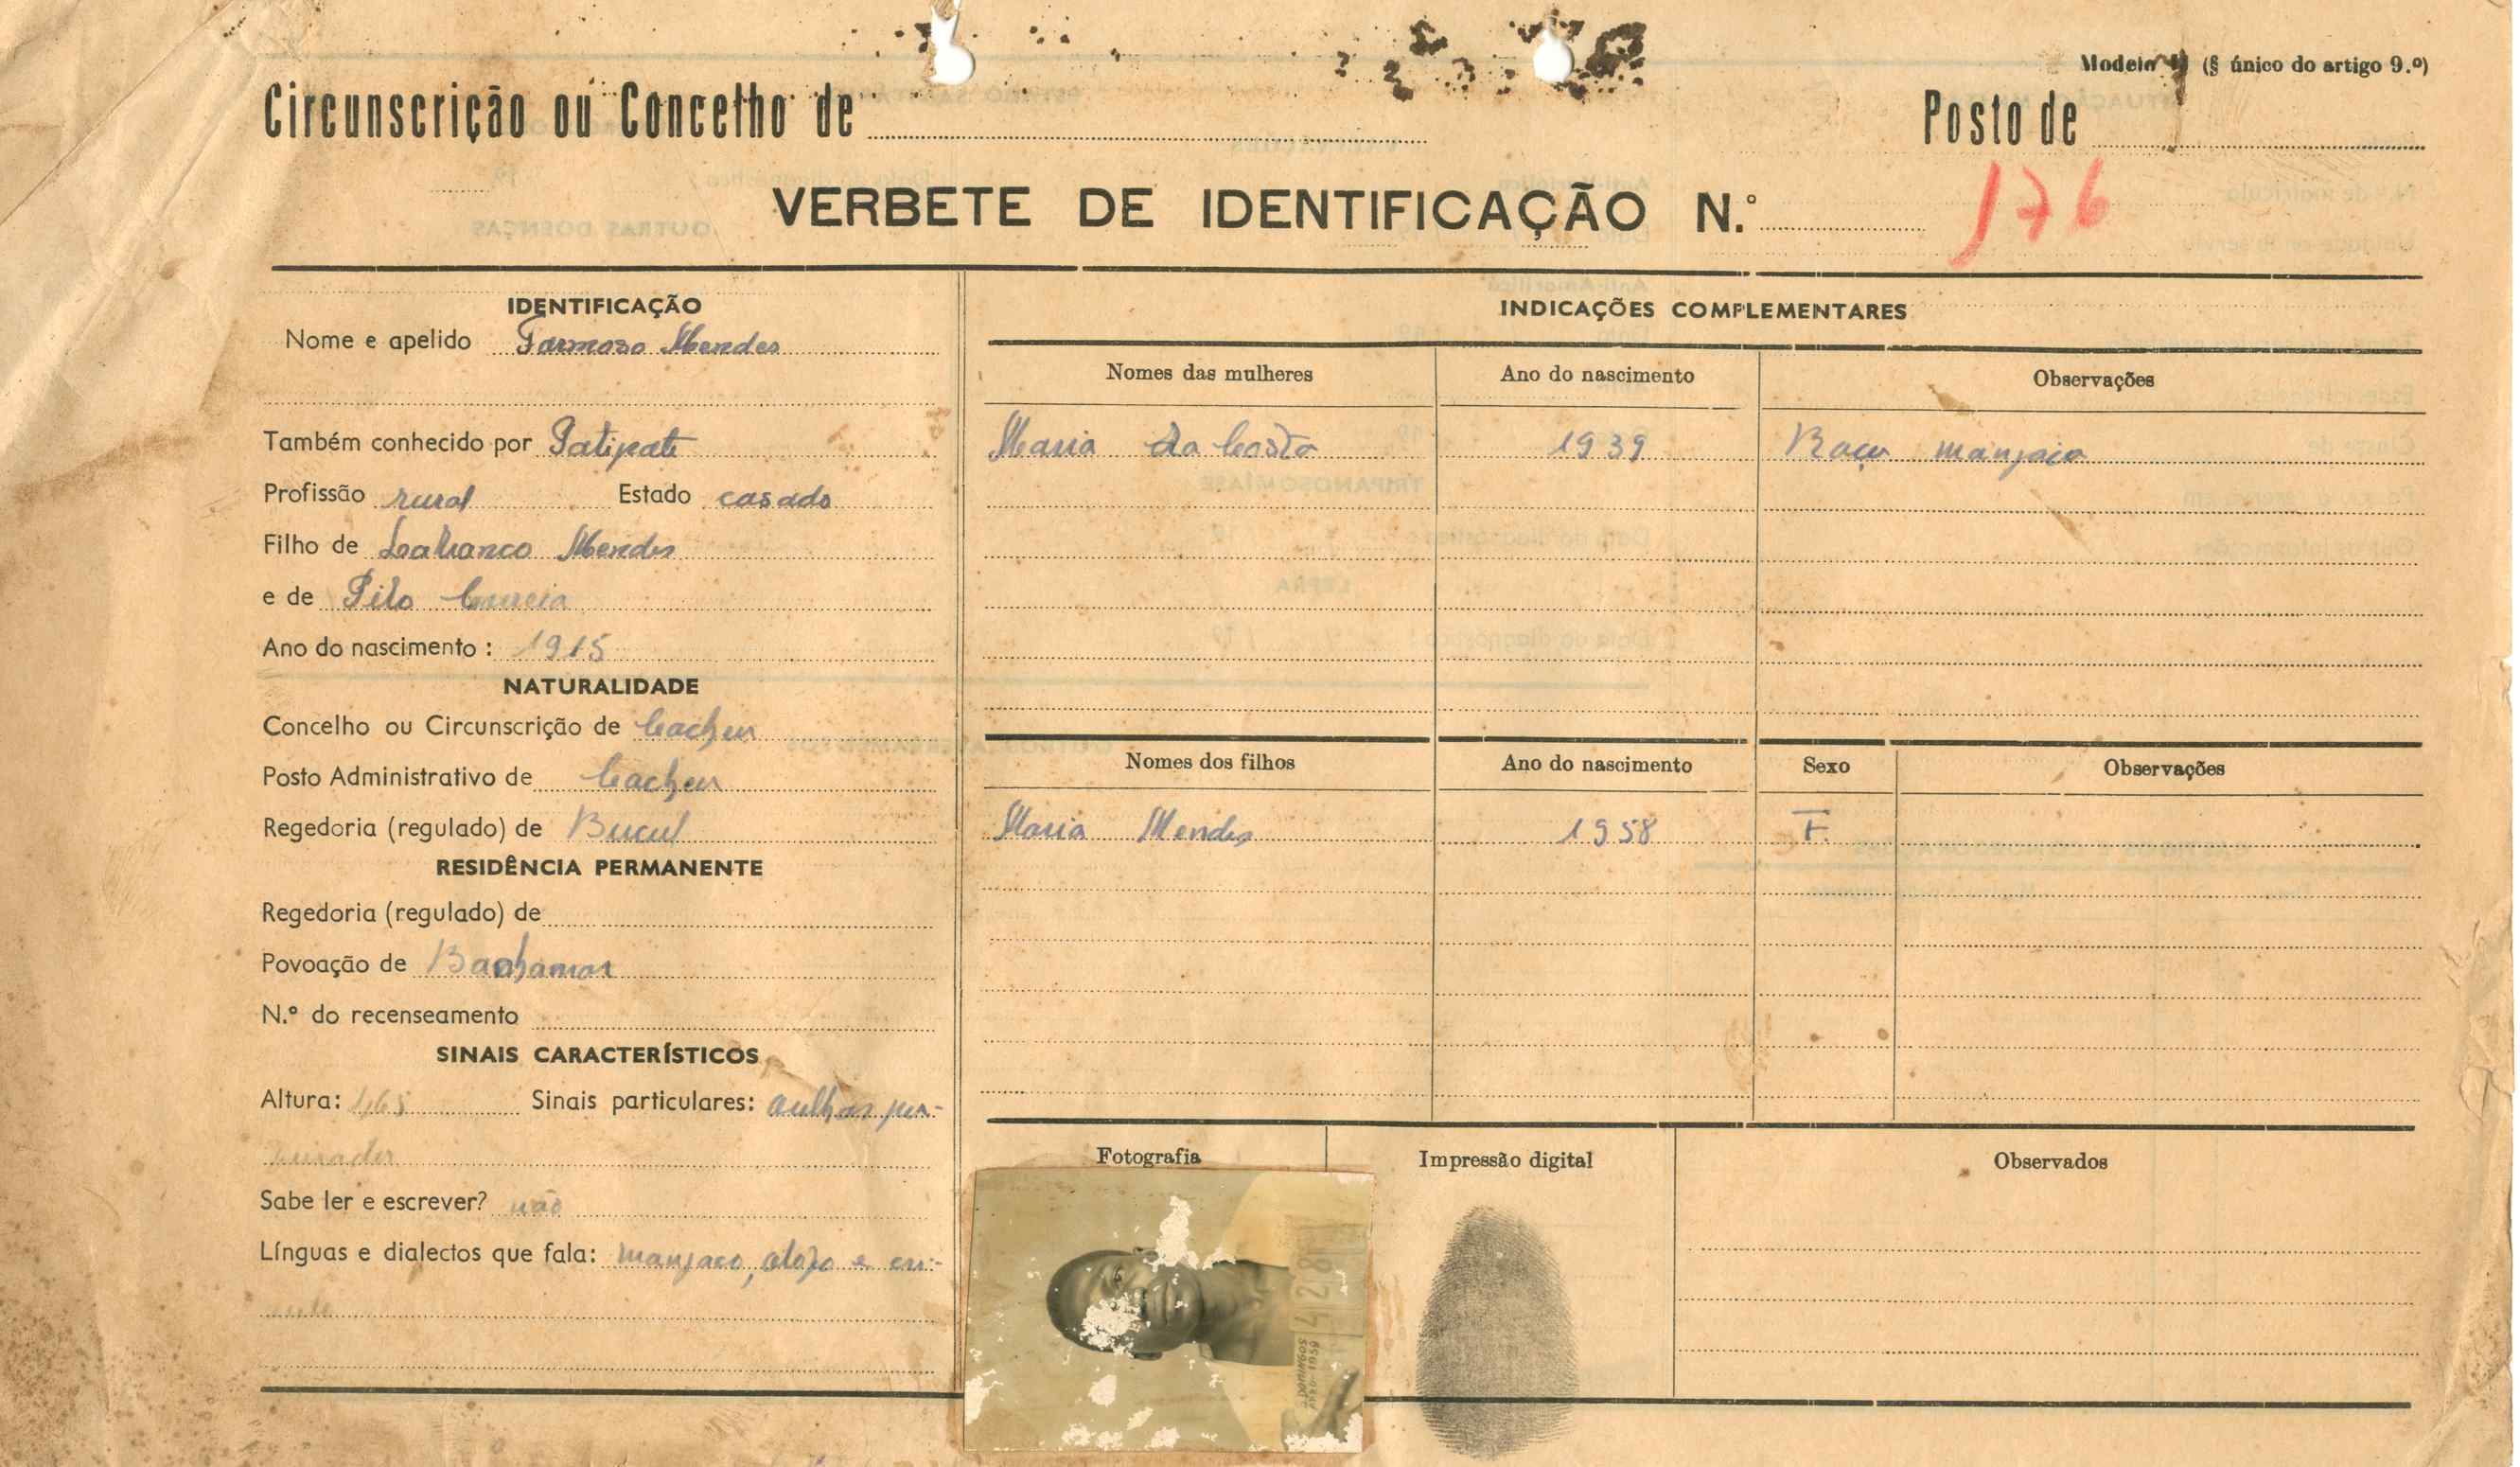 Modelo (§ único do artigo 9.º)
Circunscrição ou Concelho de
Posto de
VERBETE DE IDENTIFICAÇÃO N.º 176
IDENTIFICAÇÃO
Nome e apelido Farmoso Mendes
Também conhecido por Patipate
Profissão rural Estado casado
Filho de Mendes
e de Pilo
Ano do nascimento : 1915
NATURALIDADE
Concelho ou Circunscrição de Cacheu
Posto Administrativo de Cacheu
Regedoria (regulado) de Bucul
RESIDÊNCIA PERMANENTE
Regedoria (regulado) de
Povoação de
N.º do recenseamento
SINAIS CARACTERÍSTICOS
Altura: 1,65 Sinais particulares: orelhas per-
furadas
Sabe ler e escrever? não
Línguas e dialectos que fala: manjaco, olofo e cri-
oulo
INDICAÇÕES COMPLEMENTARES
Nomes das mulheres Ano do nascimento Observações
Maria da Costa 1939 Raça manjaca
Nomes dos filhos Ano do nascimento Sexo Observações
Maria Mendes 1958 F.
Fotografia Impressão digital Observados